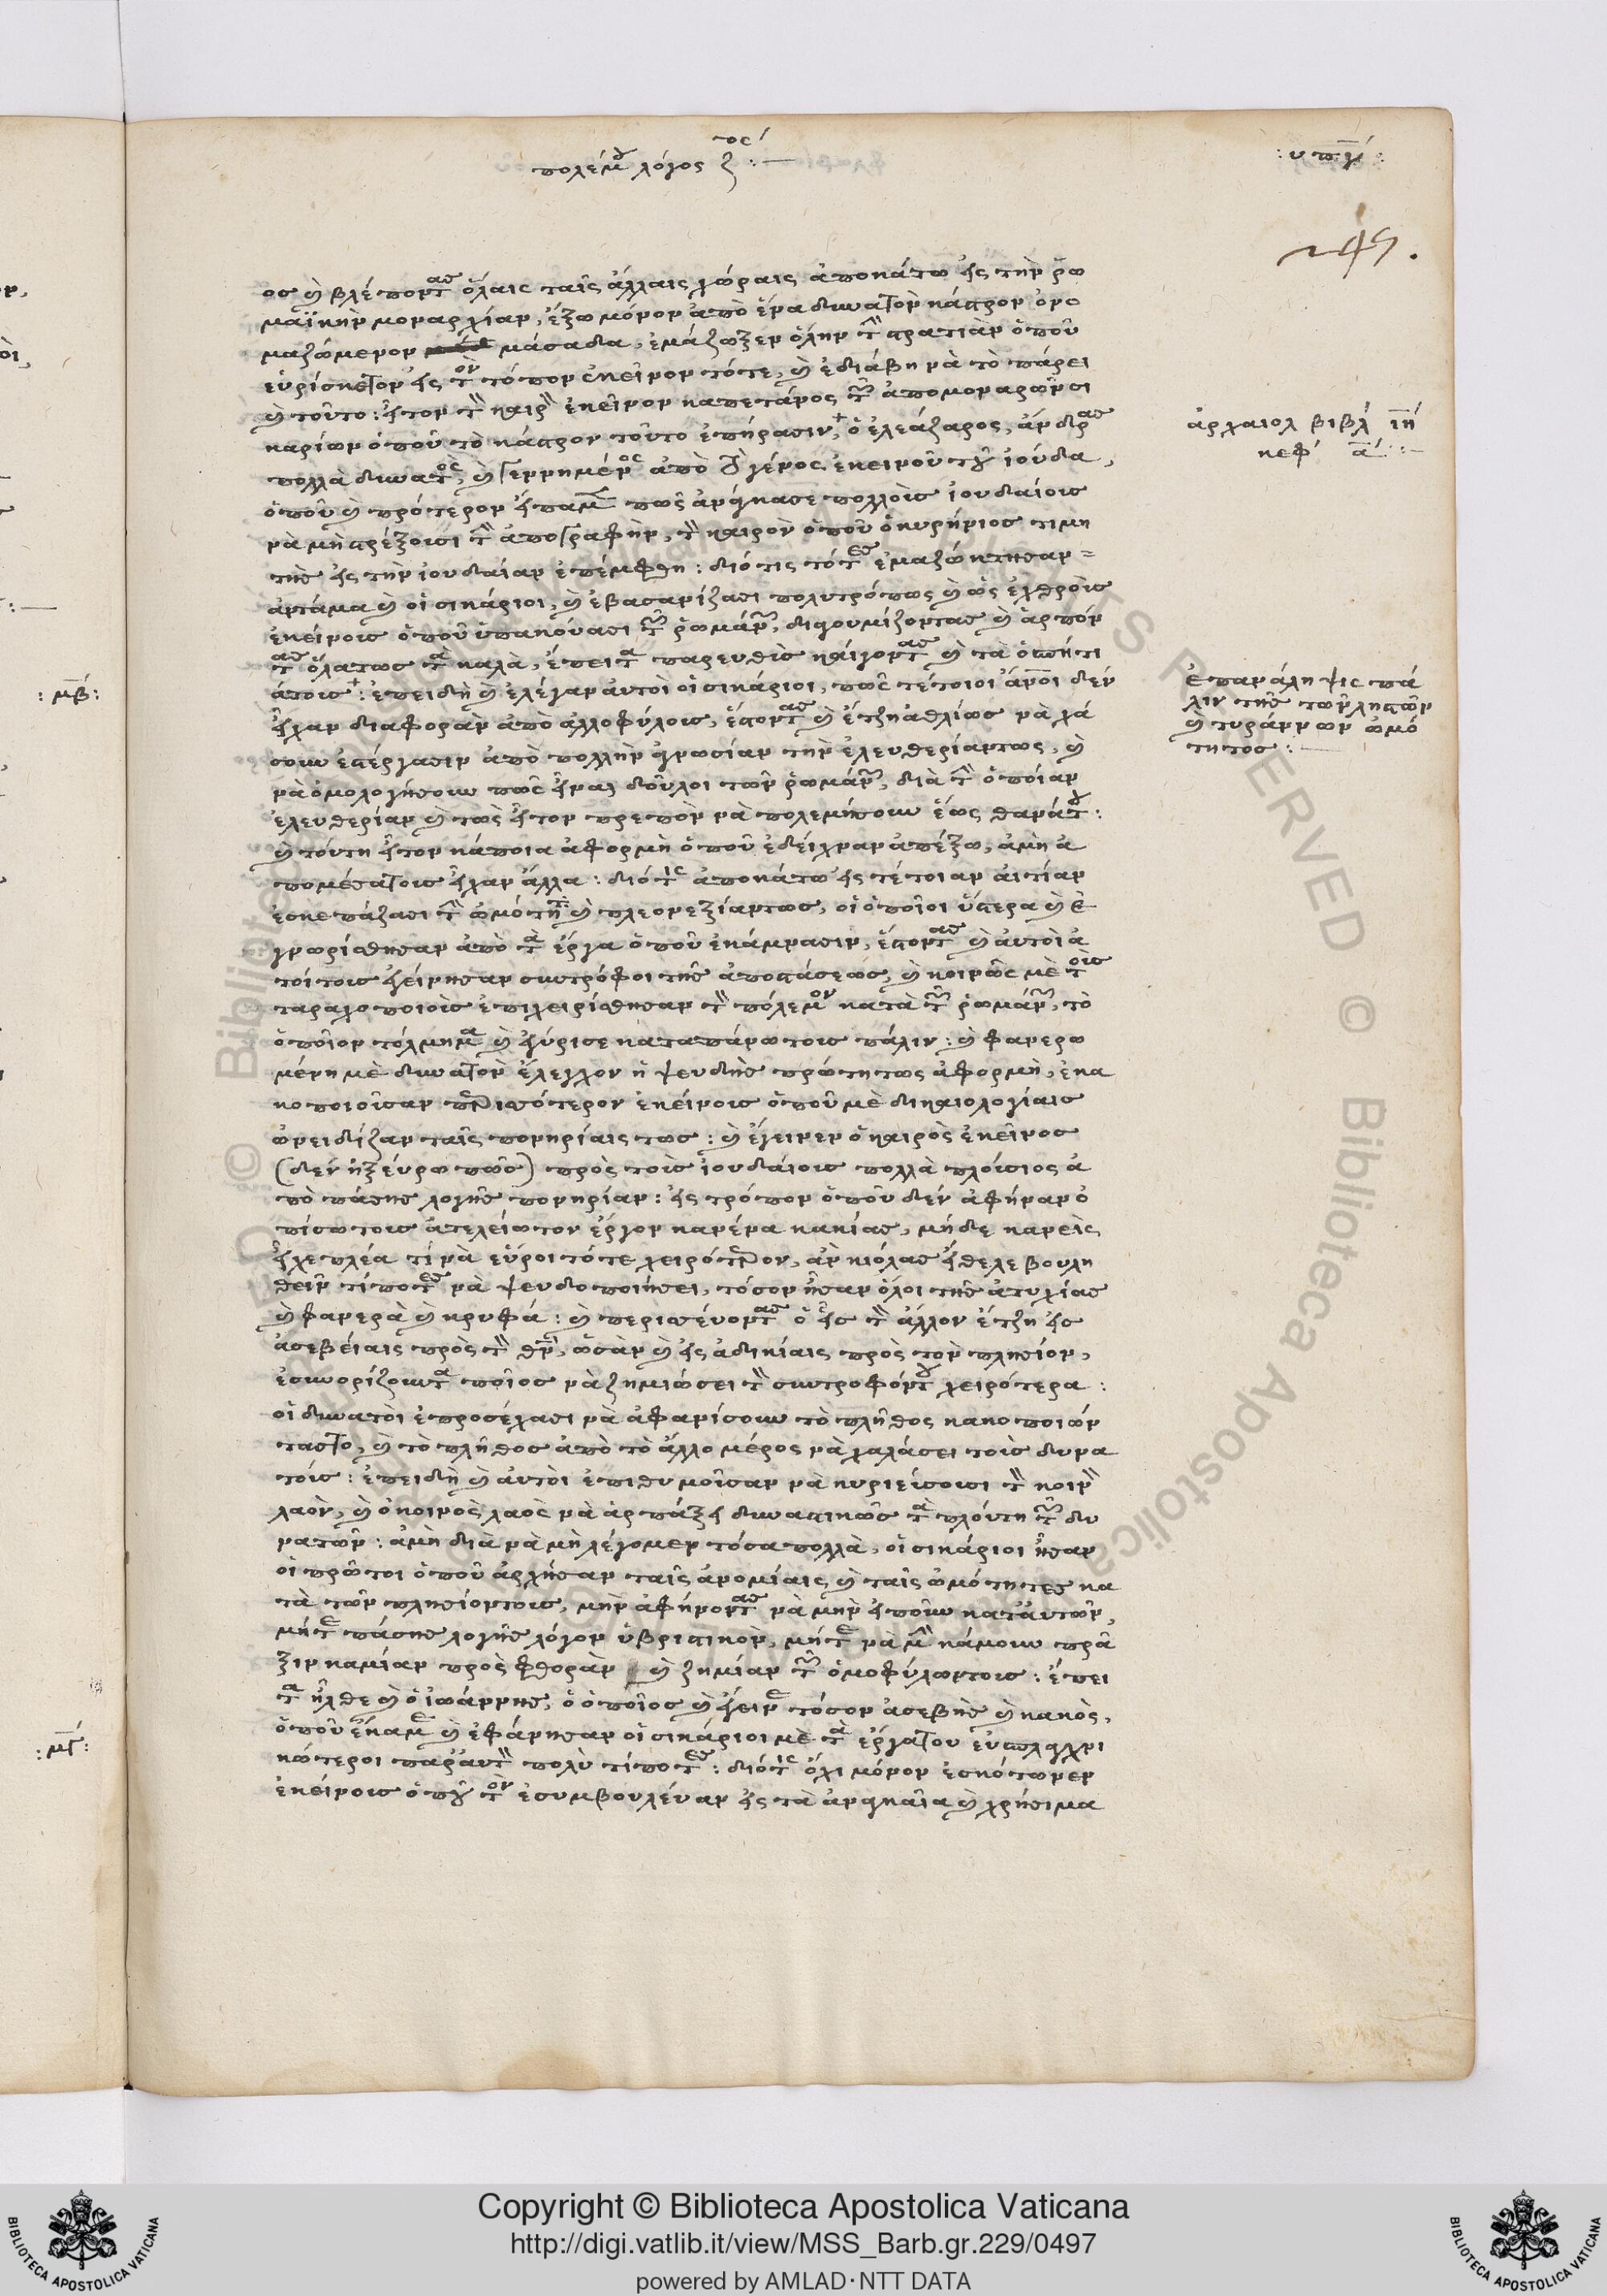 πολέμου λόγος ζ τος :—
: υπγ :
247.
ος καὶ βλέποντας ὅλαις ταῖς ἄλλαις χώραις ἀποκάτω εἰς τὴν ῥω
μαϊκὴν μοναρχίαν, ἔξω μόνον ἀπὸ ἕνα δυνατὸν κάστρον ὀνο
μαζόμενον μάσαδα, ἐμάζωξεν ὅλην τὴν στρατιὰν ὁποῦ
εὑρίσκετον εἰς τὸν τόπον ἐκεῖνον τότε, καὶ ἐδιάβη νὰ τὸ πάρει
καὶ τοῦτο: ἦτον τὸν καιρὸν ἐκεῖνον καπετάνος τῶν ἀπομοναρῶν σι
καρίων ὁποῦ τὸ κάστρον τοῦτο ἐπήρασιν, ὁ ἐλεάζαρος, ἄνδρας
πολλὰ δυνατός, καὶ γεννημένος ἀπὸ τὸ γένος ἐκεινοῦ τοῦ ἰούδα,
ὁποῦ καὶ πρότερον εἴπαμεν πῶς ἀνάγκασε πολλοὺς ἰουδαίους
νὰ μὴ στρέξουσι τὴν ἀπογραφὴν, τὸν καιρὸν ὁποῦ ὁ κυρήνιος τιμη
τὴς εἰς τὴν ἰουδαίαν ἐπέμφθη: διότις τότες ἐμαζώκτησαν =
ἀντάμα καὶ οἱ σικάριοι, καὶ ἐβασανίζασι πολυτρόπως καὶ ὡς ἐχθροὺς
ἐκείνους ὁποῦ ὑπακούασι τῶν ῥωμάνων, διαγουμίζοντας καὶ ἁρπών
τας ὅλατως τὰ καλὰ, ἔπειτα παρευθὺς καίγοντας καὶ τὰ ὁσπήτι
άτους: ἐπειδὴ καὶ ἐλέγαν αὐτοὶ οἱ σικάριοι, πῶς τέτοιοι ἄνθρωποι δὲν
εἶχαν διαφορὰν ἀπὸ ἀλλοφύλους, ἔστοντας καὶ ἔτζη ἀθλίως νὰ χά
σουν ἐστέργασιν ἀπὸ πολλὴν ἀγνωσίαν τὴν ἐλευθερίαντως, καὶ
νὰ ὁμολογήσουν πῶς εἶναι δοῦλοι τῶν ῥωμάνων, διὰ τὴν ὁποίαν
ἐλευθερίαν καὶ τῶς ἦτον πρεπὸν νὰ πολεμήσουν ἕως θανάτου:
καὶ τούτη ἦτον κάποια ἀφορμὴ ὁποῦ ἐδείχναν ἀπέξω, ἀμὴ ἀ
πομέσατους εἶχαν ἄλλα: διότις ἀποκάτω εἰς τέτοιαν αἰτίαν
ἐσκεπάζασι τὴν ὠμότητα καὶ πλεονεξίαντως, οἱ ὁποῖοι ὕστερα καὶ ἐ
γνωρίσθησαν ἀπὸ τὰ ἔργα ὁποῦ ἐκάμνασιν, ἔστοντας καὶ αὐτοὶ ἀ
τοί τους ἐγείνησαν συντρόφοι τῆς ἀποστάσεως, καὶ κοινῶς μὲ τοὺς
ταραχοποιοὺς ἐπιχειρίσθησαν τὸν πόλεμον κατὰ τῶν ῥωμάνων, τὸ
ὁποῖον τόλμημα καὶ ἐγύρισε καταπάνωτους πάλιν: καὶ φανερω
μένη μὲ δυνατὸν ἔλεγχον ἡ ψευδὴς πρώτητως ἀφορμὴ, ἐκα
κοποιοῦσαν περισσότερον ἐκείνους ὁποῦ μὲ δικαιολογίαις
ὠνειδίζαν ταῖς πονηρίαις τως: καὶ ἔγεινεν ὁ καιρὸς ἐκεῖνος
(δὲν ἠξεύρω πῶς) πρὸς τοὺς ἰουδαίους πολλὰ πλούσιος ἀ
πὸ πάσης λογῆς πονηρίαν: εἰς τρόπον ὁποῦ δὲν ἀφῆναν ὀ
πίσω τους ἀτελείωτον ἔργον κανένα κακίας, μήδε κανεὶς
εἶχε πλέα τί νὰ εὕροι τότε χειρότερον, ἂν κιόλας ἤθελε βουλη
θεῖν τίποτες νὰ ψευδοποιήσει, τόσον ἦσαν ὅλοι τῆς ἀτυχίας
καὶ φανερὰ καὶ κρυφά: καὶ περισσεύοντας ὁ εἷς τὸν ἄλλον ἔτζη εἰς
ἀσεβείαις πρὸς τὸν θεὸν, ὡσὰν καὶ εἰς ἀδικίαις πρὸς τὸν πλησίον,
ἐσυνορίζουντα ποῖος νὰ ζημιώσει τὸν συντροφόντου χειρότερα:
οἱ δυνατοὶ ἐπροσέχασι νὰ ἀφανίσουν τὸ πλῆθος κακοποιών
τας το, καὶ τὸ πλῆθος ἀπὸ τὸ ἄλλο μέρος νὰ χαλάσει τοὺς δυνα
τούς: ἐπειδὴ καὶ αὐτοὶ ἐπιθυμοῦσαν νὰ κυριεύσουσι τὸν κοινὸν
λαὸν, καὶ ὁ κοινὸς λαὸς νὰ ἁρπάξει δυναστικῶς τὰ πλούτη τῶν δυ
νατῶν: ἀμὴ διὰ νὰ μὴ λέγομεν τόσα πολλὰ, οἱ σικάριοι ἦσαν
οἱ πρῶτοι ὁποῦ ἀρχῆσαν ταῖς ἀνομίαις καὶ ταῖς ὠμότητες κα
τὰ τῶν πλησίοντους, μὴν ἀφήνοντας νὰ μὴν εἰποῦν κατ' αὐτῶν,
μήτε πάσης λογῆς λόγον ὑβριστικὸν, μήτε νὰ μὴν κάμουν πρᾶ
ξιν καμίαν πρὸς φθορὰν καὶ ζημίαν τῶν ὁμοφύλωντους: ἔπει
τα ἦλθε καὶ ὁ ἰωάννης, ὁ ὁποῖος καὶ ἔγεινε τόσον ἀσεβὴς καὶ κακὸς,
ὁποῦ ἔκαμε καὶ ἐφάνησαν οἱ σικάριοι μὲ τὰ ἔργατου εὐσπλαγχνι
κώτεροι παρ' αὐτὸν πολὺ τίποτες: διότις ὄχι μόνον ἐσκότωνεν
ἐκείνους ὁποῦ τὸν ἐσυμβουλεύαν εἰς τὰ ἀναγκαῖα καὶ χρήσιμα
ἀρχαιολ βιβλ ιη
κεφ α :—
Ἐπανάληψις πά
λιν τῆς τῶν λῃστῶν
καὶ τυράννων ὠμό
τητος :—
: μβ :
: μγ :
Copyright © Biblioteca Apostolica Vaticana
http://digi.vatlib.it/view/MSS_Barb.gr.229/0497
powered by AMLAD·NTT DATA
BIBLIOTECA APOSTOLICA VATICANA
BIBLIOTECA APOSTOLICA VATICANA